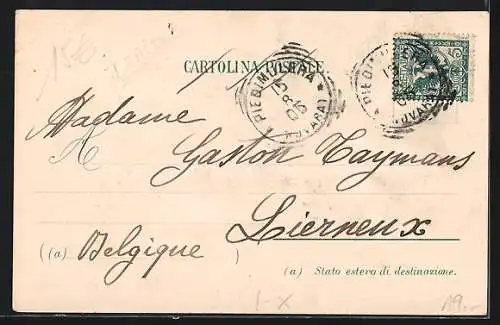 156
CARTOLINA POSTALE
PIEDIMULERA
15
8
05
(NOVARA)
Madame
A
Gaston Taymans
Lierneux
(a) Belgique
(a) Stato estero di destinazione.
1-X
19.-